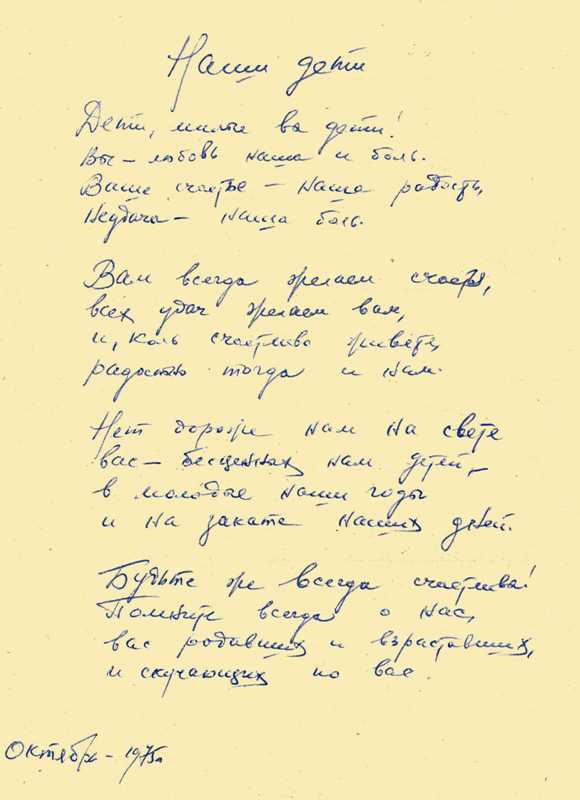 Наши дети
Дети, милые вы дети!
Вы – любовь наша и боль.
Ваше счастье – наша радость,
Неудача – наша боль.
Вам всегда желаем счастья,
всех удач желаем вам,
и, коль счастливо живёте,
радостно тогда и нам.
Нет дороже нам на свете
вас – бесценных нам детей, –
в молодые наши годы
и на закате наших дней.
Будьте же всегда счастливы!
Помните всегда о нас,
вас родивших и взраставших,
и скучающих по вас.
Октябрь – 1975г.